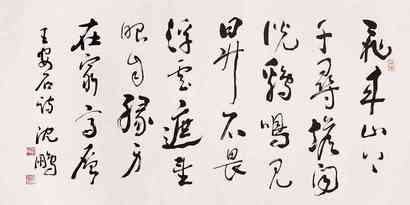 飛来山上
千尋塔聞
説鷄鳴見
日升不畏
浮雲遮望
眼自緣身
在最高層
王安石詩 沈鵬